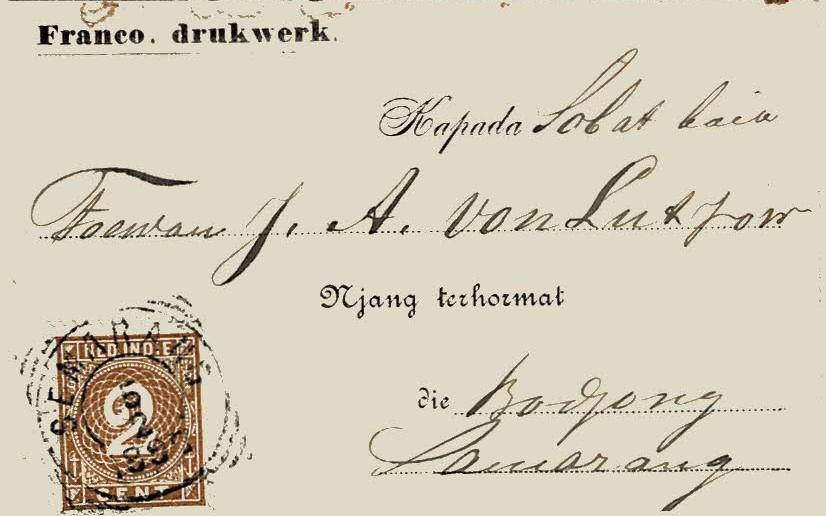 Franco. drukwerk.
Kapada Sobat baik
Toewan J. A. von Lutzow
Njang terhormat
die Bodjong
Samarang
SEMARANG
NED. INDIE
2
CENT